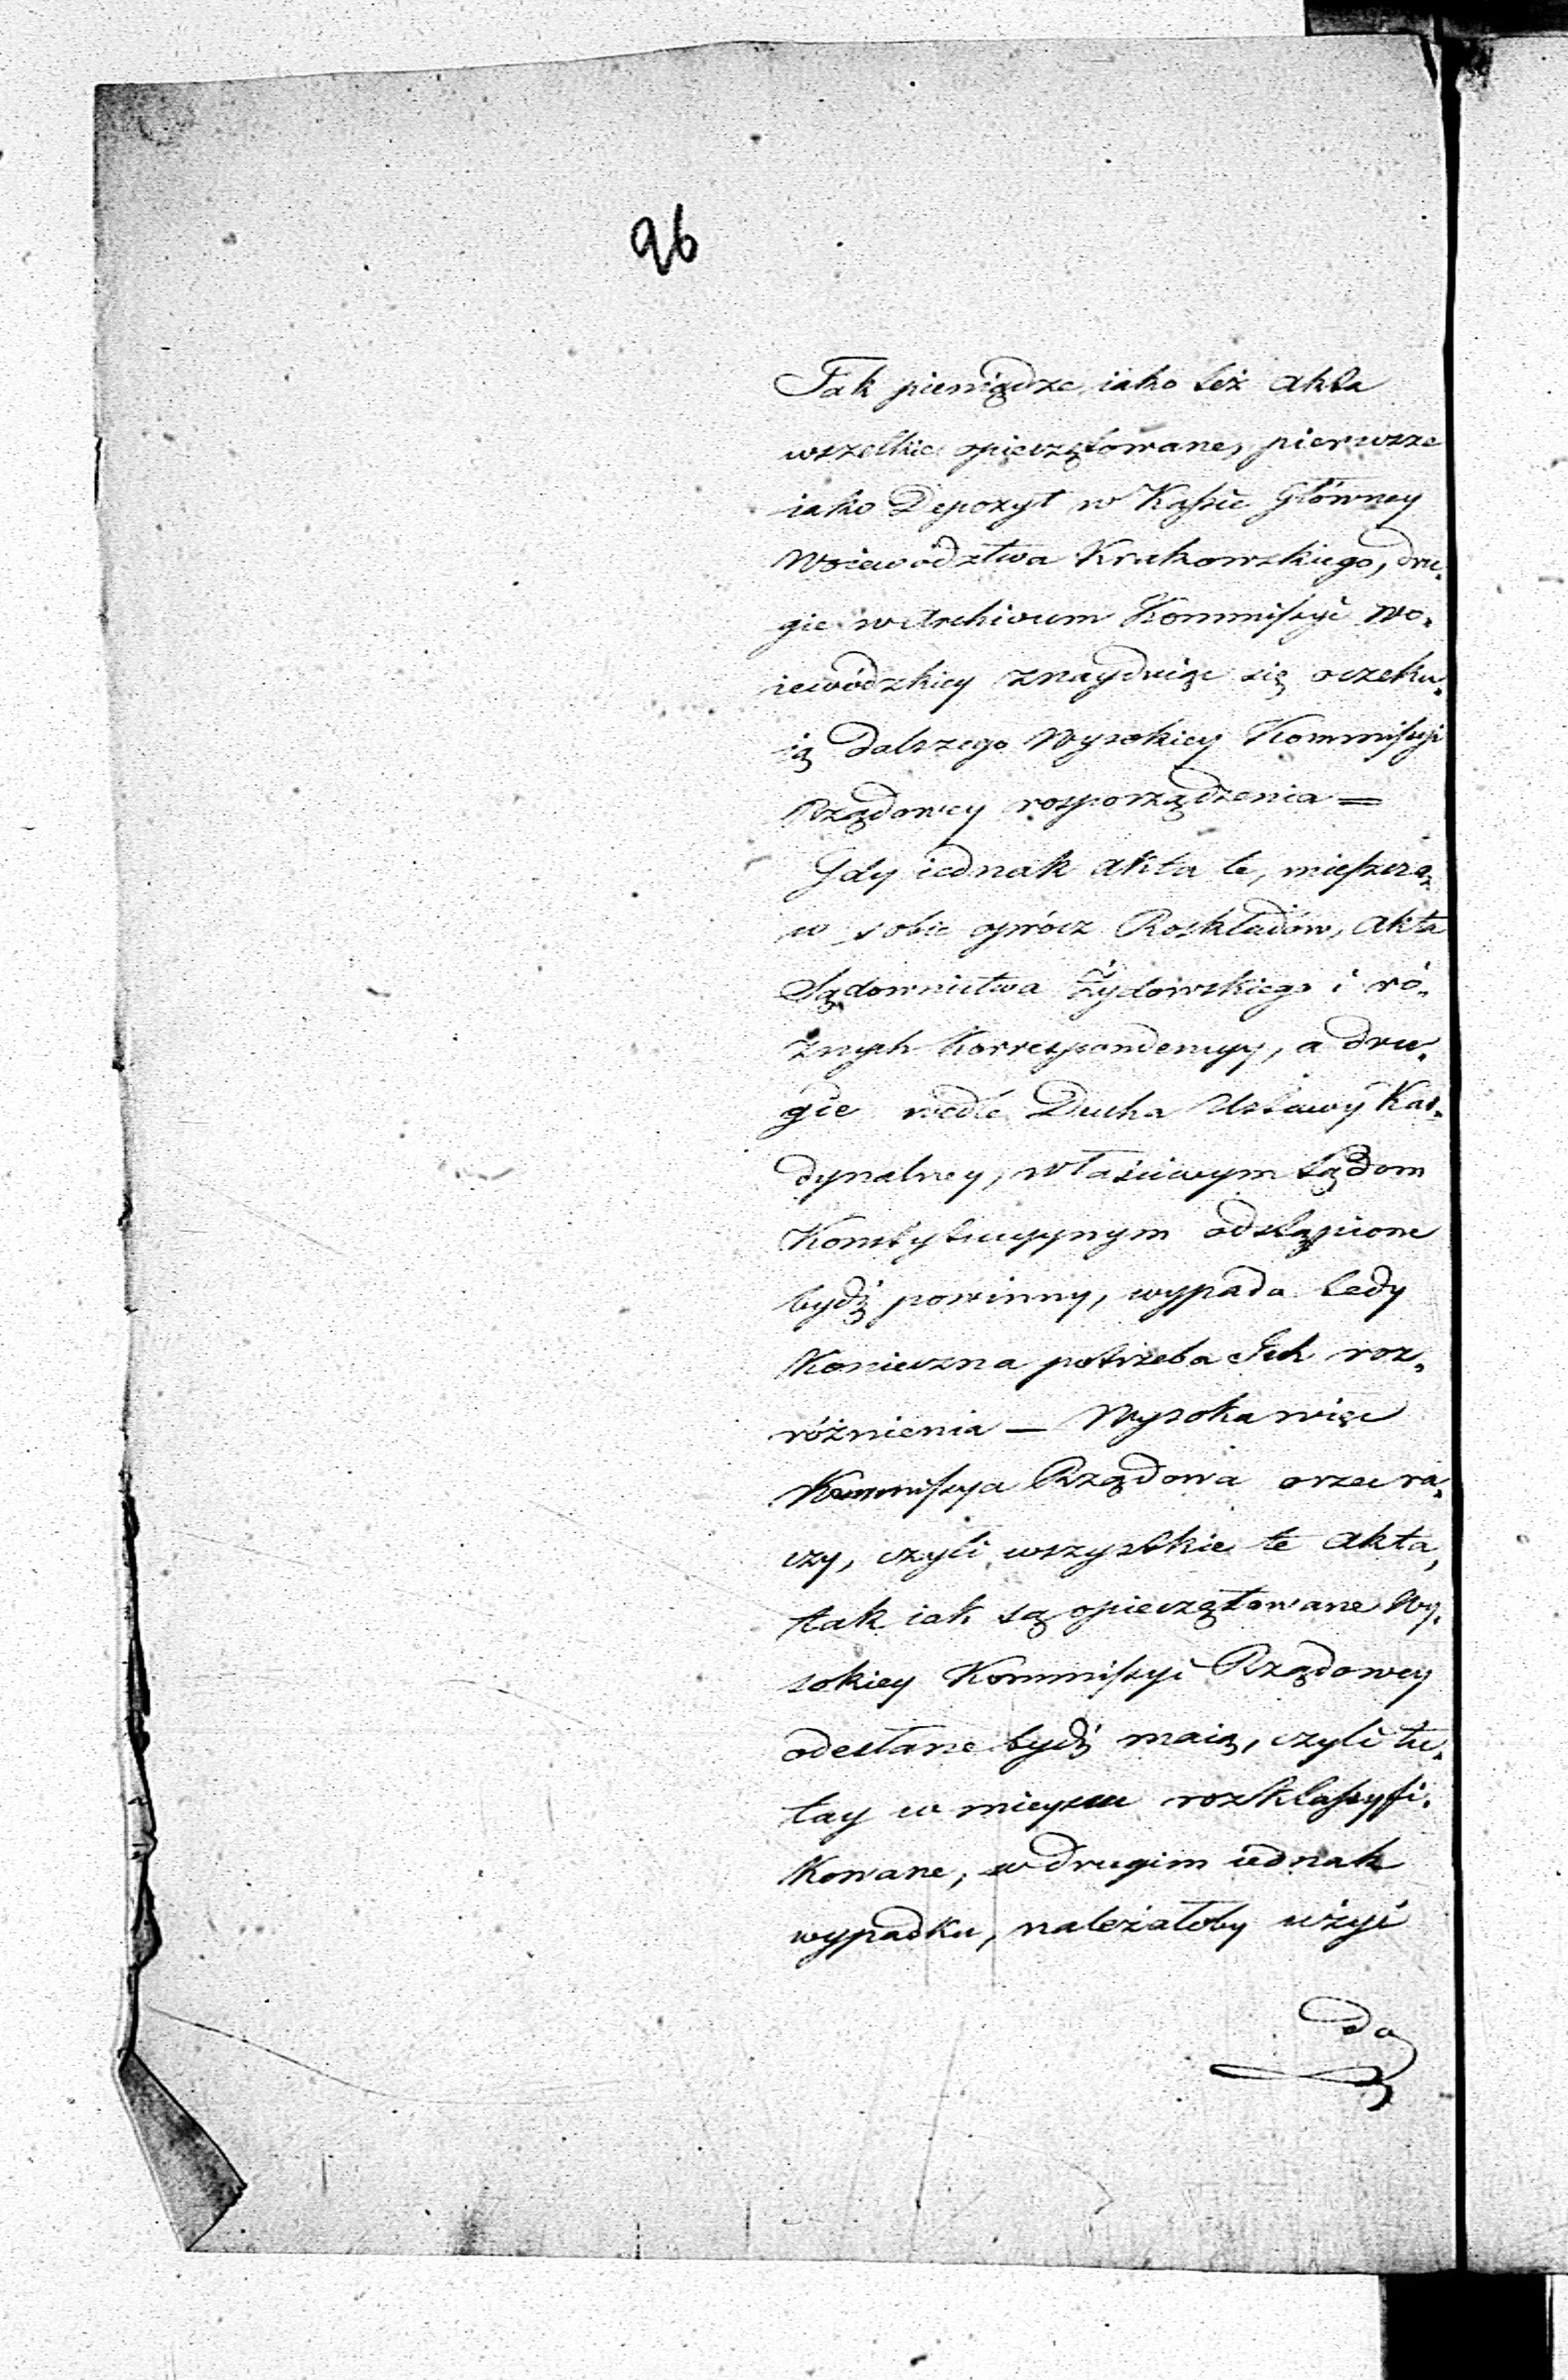 96
Tak pieniądze iako też akta
wszelkie opieczętowane, pierwsze
iako Depozyt w Kassie Główney
Woiewództwa Krakowskiego, dru-
gie w Archivum Kommissyi Wo-
iewódzkiey znayduiąc się oczeku-
ią dalszego Wysokiey Kommissyi
Rządowey rosporządzenia =
Gdy iednak akta te, mieszczą
w sobie oprócz Roskładów, akta
Sądownictwa Żydowskiego i ró-
żnych Korrespondencyy, a dru-
gie wedle Ducha Ustawy Kar-
dynalney, właściwym Sądom
Konstytucyynym odstąpione
bydź powinny, wypada tedy
Konieczna potrzeba Ich roz-
różnienia — Wysoka więc
Kommissya Rządowa orzec ra-
czy, czyli wszystkie te akta,
tak iak są opieczętowane Wy-
sokiey Kommissyi Rządowey
odesłane bydź maią, czyli tu-
tay w mieyscu rozklassyfi-
kowane, w drugim iednak
wypadku, należałoby użyć
do